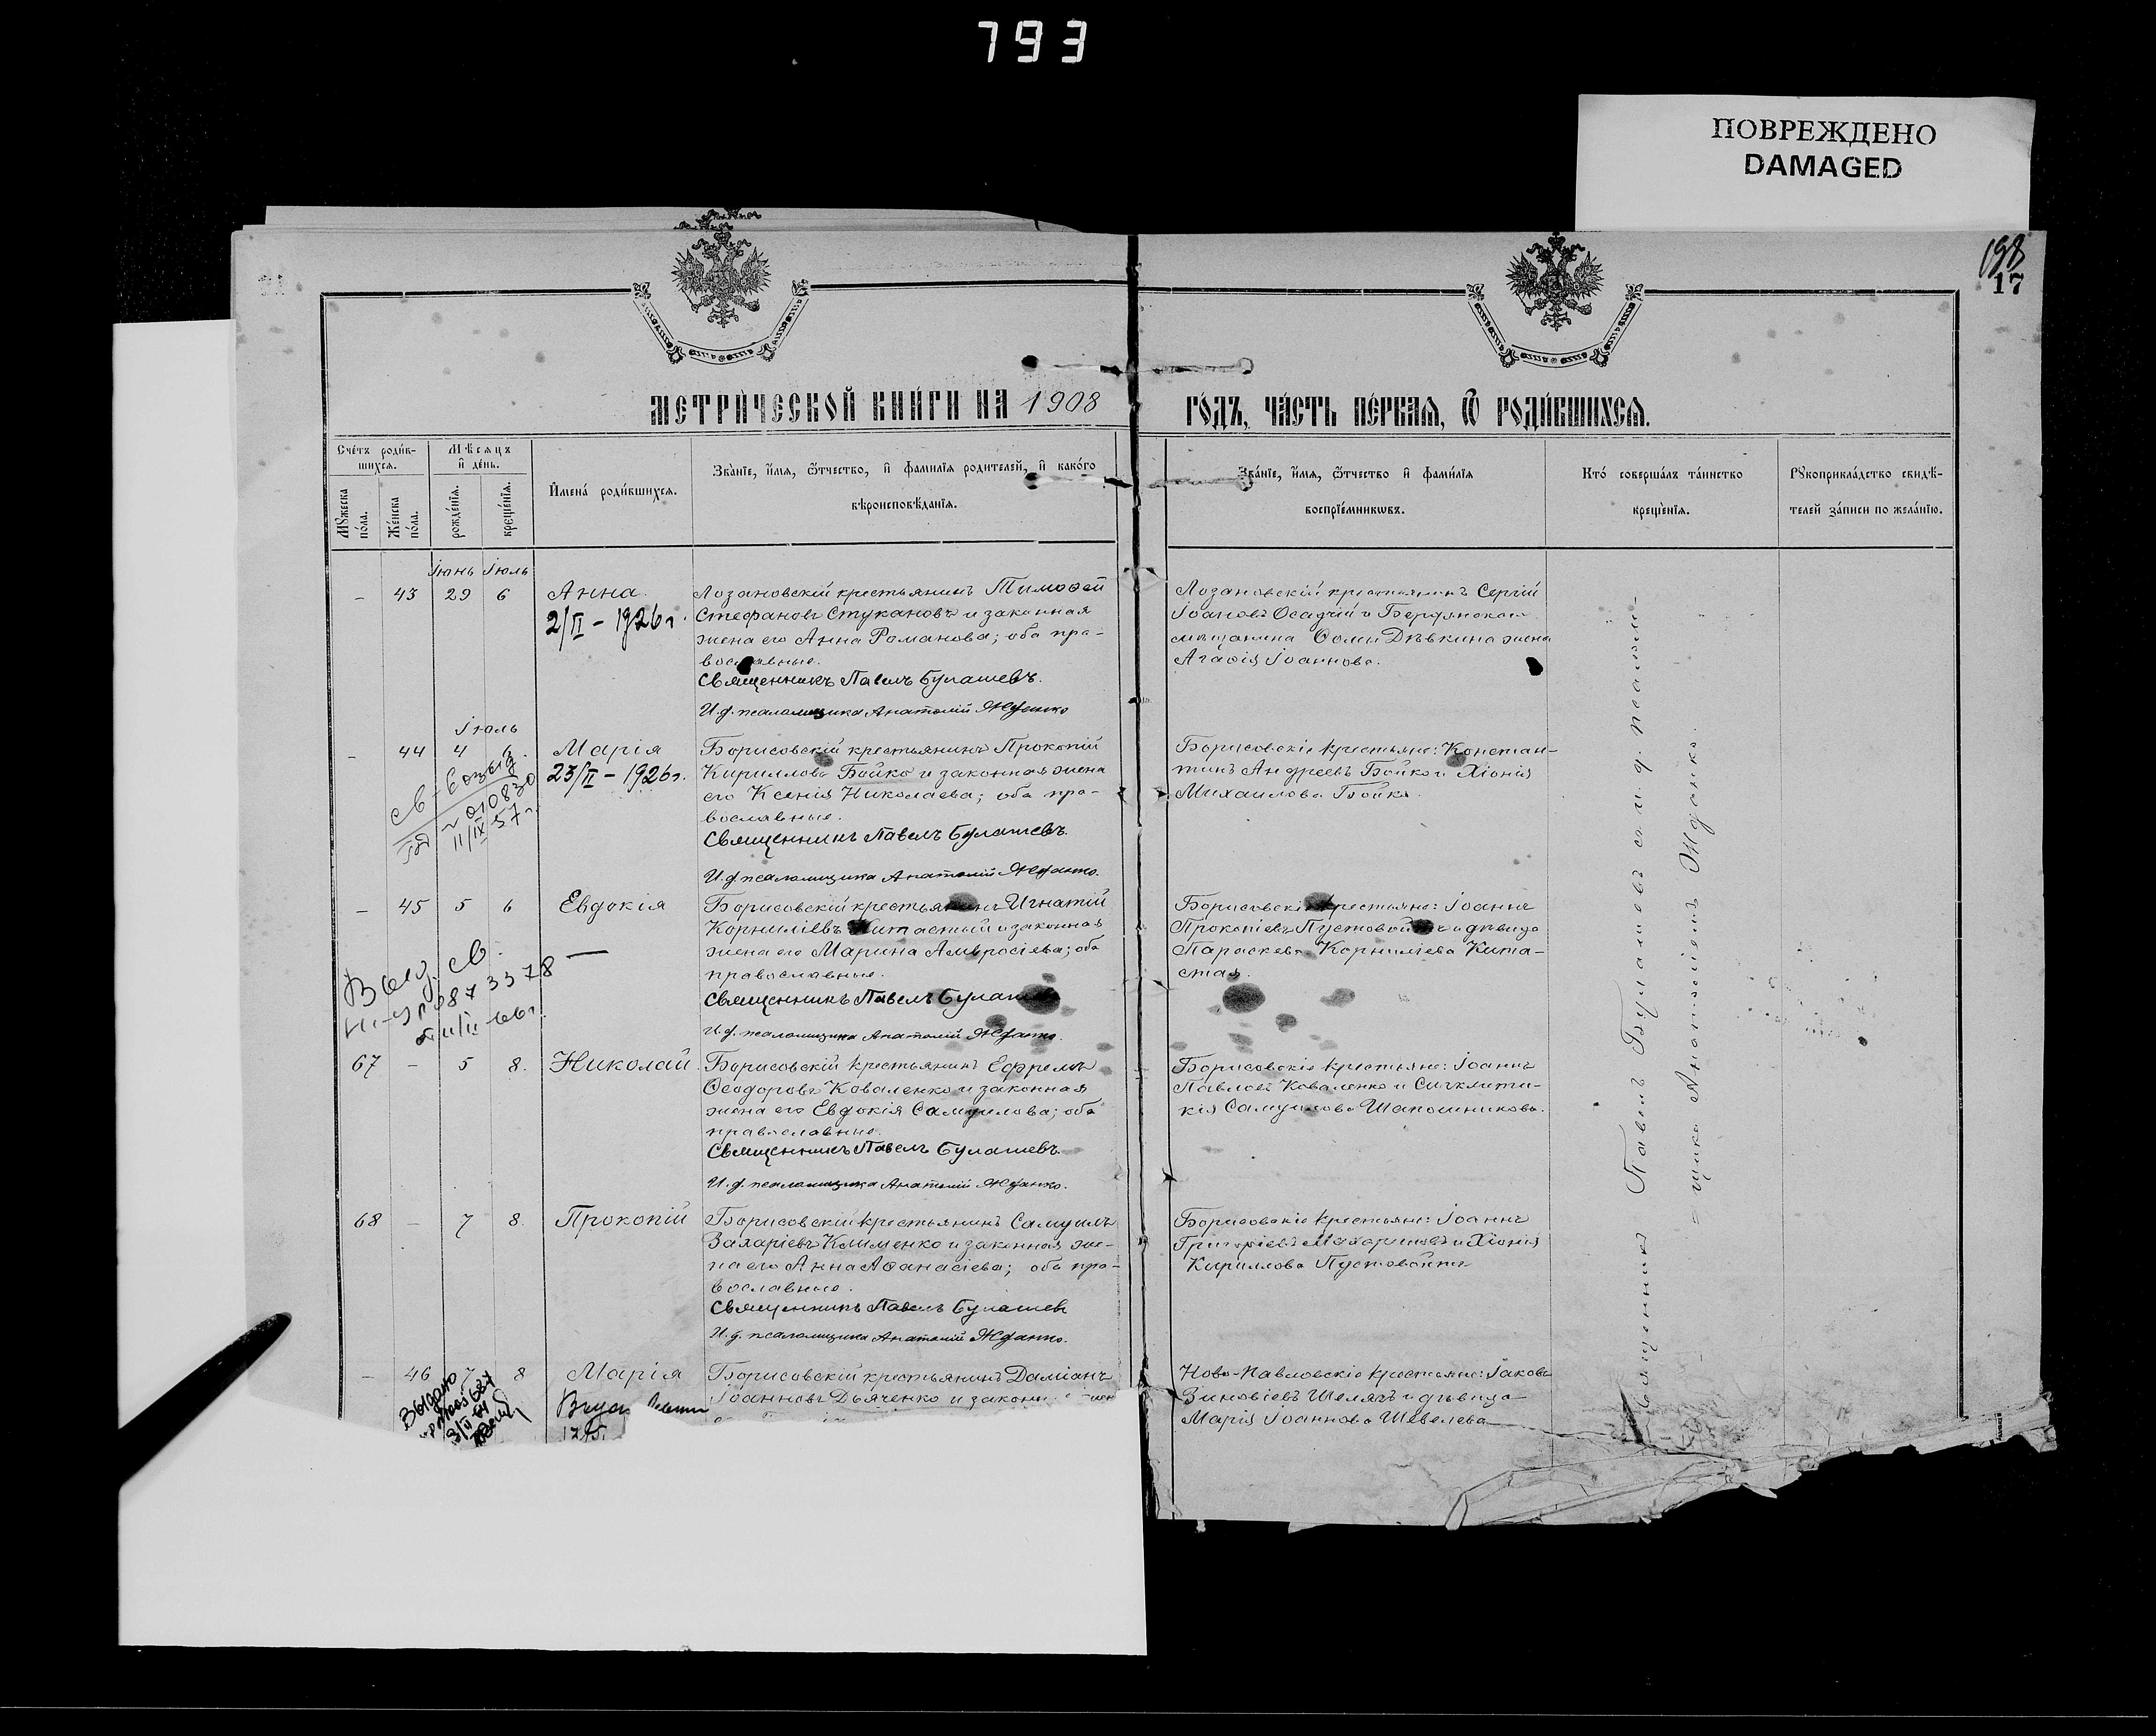 793
ПОВРЕЖДЕНО
DAMAGED
198
17
МЕТРИЧЕСКОЙ КНИГИ НА 1908
ГОДЪ, ЧАСТЬ ПЕРВАЯ, Ѿ РОДИВШИХСЯ.
Счетъ родив-
шихся.
Мѣсяцъ
и день.
Мꙋжеска
пола.
Женска
пола.
рожденїѧ.
крещенїѧ.
Имена родившихся.
Званїе, имя, ѿтчество, и фамилїя родителей, и какого
вѣроисповѣданїя.
Званїе, имя, ѿтчество и фамилїя
воспрїемникѡвъ.
Кто совершалъ таинство
крещенїя.
Рꙋкоприкладство свидѣ-
телей записи по желанїю.
Іюнь Іюль
- 43 29 6 Анна
2/II - 1926 г.
Лозановскій крестьянинъ Тимоѳей
Стефановъ Стукановъ и законная
жена его Анна Романова; оба пра-
вославные.
Священникъ Павелъ Булашевъ.
И.д. псаломщика Анатолій Жданко
Лозановскій крестьянинъ Сергій
Іоановъ Осадчій и Бердянскаго
мѣщанина Ѳомы Дѣвкина жена
Агаѳія Іоаннова.
Іюль
- 44 4 6 Марія
23/II - 1926 г.
II/IX 57 г.
Борисовскій крестьянинъ Прокопій
Кирилловъ Бойко и законная жена
его Ксенія Николаева; оба пра-
вославные.
Священникъ Павелъ Булашевъ.
И.д. псаломщика Анатолій Жданко.
Борисовскіе крестьяне: Констан-
тинъ Андреевъ Бойко и Хіонія
Михаилова Бойко.
- 45 5 6 Евдокія
Борисовскій крестьянинъ Игнатій
Корниліевъ Китастый и законная
жена его Марина Амвросіева; оба
православные.
Священникъ Павелъ Булашевъ
И.д. псаломщика Анатолій Жданко.
Борисовскіе крестьяне: Іоаннъ
Прокопіевъ Пустовойтъ и дѣвица
Параскева Корниліева Кита-
стая.
67 - 5 8. Николай
Борисовскій крестьянинъ Ефремъ
Ѳеодоровъ Коваленко и законная
жена его Евдокія Самуилова; оба
православные.
Священникъ Павелъ Булашевъ.
И.д. псаломщика Анатолій Жданко.
Борисовскіе крестьяне: Іоаннъ
Павловъ Коваленко и Сигклити-
кія Самуилова Шапошникова.
68 - 7 8. Прокопій
Борисовскій крестьянинъ Самуилъ
Захаріевъ Клименко и законная же-
на его Анна Аѳанасіева; оба пра-
вославные.
Священникъ Павелъ Булашевъ
И.д. псаломщика Анатолій Жданко.
Борисовскіе крестьяне: Іоаннъ
Григоріевъ и Хіонія
Кириллова Пустовойтъ
- 46 7 8 Марія
Выдано
Борисовскій крестьянинъ Даміанъ
Іоанновъ Дьяченко и законн
Ново-Павловскіе крестьяне: Іаковъ
Зиновіевъ Шелягъ и дѣвица
Марія Іоаннова Шевелева
Священникъ Павелъ Булашевъ съ и. д. псалом-
щика Анатоліемъ Жданко.